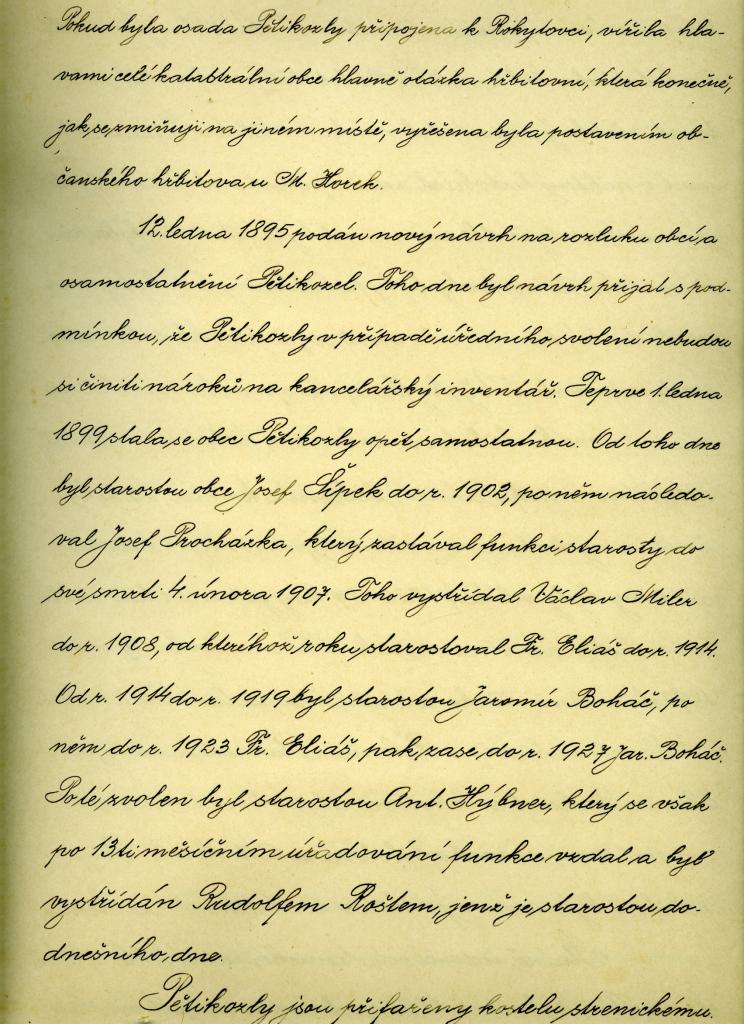 Pokud byla osada Pětikozly připojena k Rokytovci, vířila hla-
vami celé katastrální obce hlavně otázka hřbitovní, která konečně,
jak se zmiňuji na jiném místě, vyřešena byla postavením ob-
čanského hřbitova u M. Horek.
12. ledna 1895 podán nový návrh na rozluku obcí a
osamostatnění Pětikozel. Toho dne byl návrh přijat s pod-
mínkou, že Pětikozly v případě úředního svolení nebudou
si činiti nároků na kancelářský inventář. Teprve 1. ledna
1899 stala se obec Pětikozly opět samostatnou. Od toho dne
byl starostou obce Josef Šípek do r. 1902, po něm následo-
val Josef Procházka, který zastával funkci starosty do
své smrti 4. února 1907. Toho vystřídal Václav Miler
do r. 1908, od kteréhož roku starostoval Fr. Eliáš do r. 1914.
Od r. 1914 do r. 1919 byl starostou Jaromír Boháč, po
něm do r. 1923 Fr. Eliáš, pak zase do r. 1927 Jar. Boháč.
Poté zvolen byl starostou Ant. Hýbner, který se však
po 13ti měsíčním úřadování funkce vzdal a byl
vystřídán Rudolfem Roštem, jenž je starostou do-
dnešního dne.
Pětikozly jsou přifařeny kostelu strenickému.